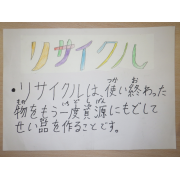 リサイクル
●リサイクルは、使い終わった
物をもう一度資源にもどして
せい品を作ることです。